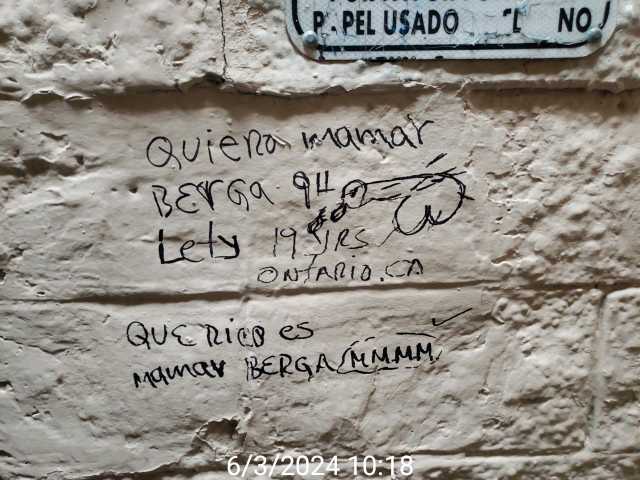 USADO NO
QUIERA MAMAR
BERGA 94
Lety 19 YRS
ONTARIO.CA
QUE RICO ES
MAMAR BERGA MMMM
6/3/2024 10:18